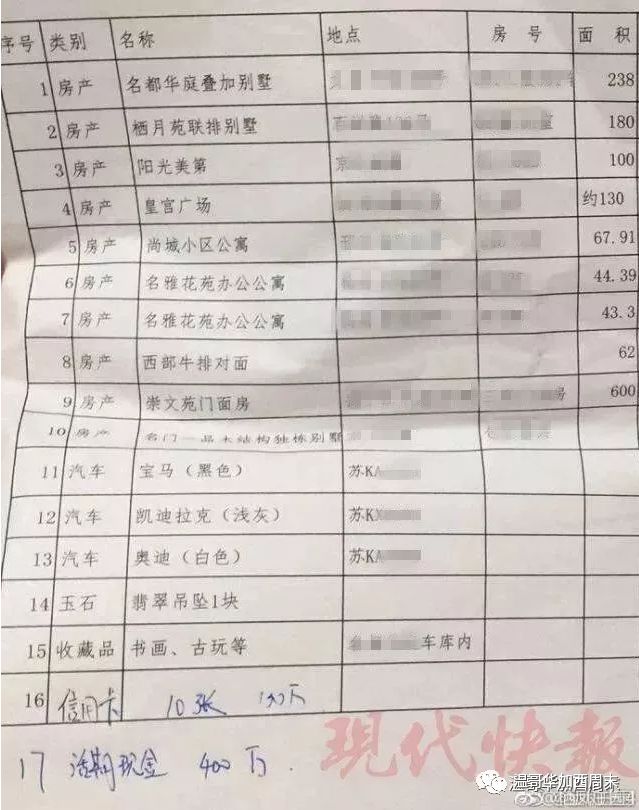 序号 类别 名称 地点 房号 面积
1 房产 名都华庭叠加别墅 238
2 房产 栖月苑联排别墅 180
3 房产 阳光美第 100
4 房产 皇宫广场 约130
5 房产 尚城小区公寓 67.91
6 房产 名雅花苑办公公寓 44.39
7 房产 名雅花苑办公公寓 43.3
8 房产 西部牛排对面 62
9 房产 崇文苑门面房 房 600
10 房产 名门一品木结构独栋别墅
11 汽车 宝马（黑色） 苏KA
12 汽车 凯迪拉克（浅灰） 苏KX
13 汽车 奥迪（白色） 苏KA
14 玉石 翡翠吊坠1块
15 收藏品 书画、古玩等 车库内
16 信用卡 10张 130万
17 活期现金 400万
现代快报
温哥华加西周末